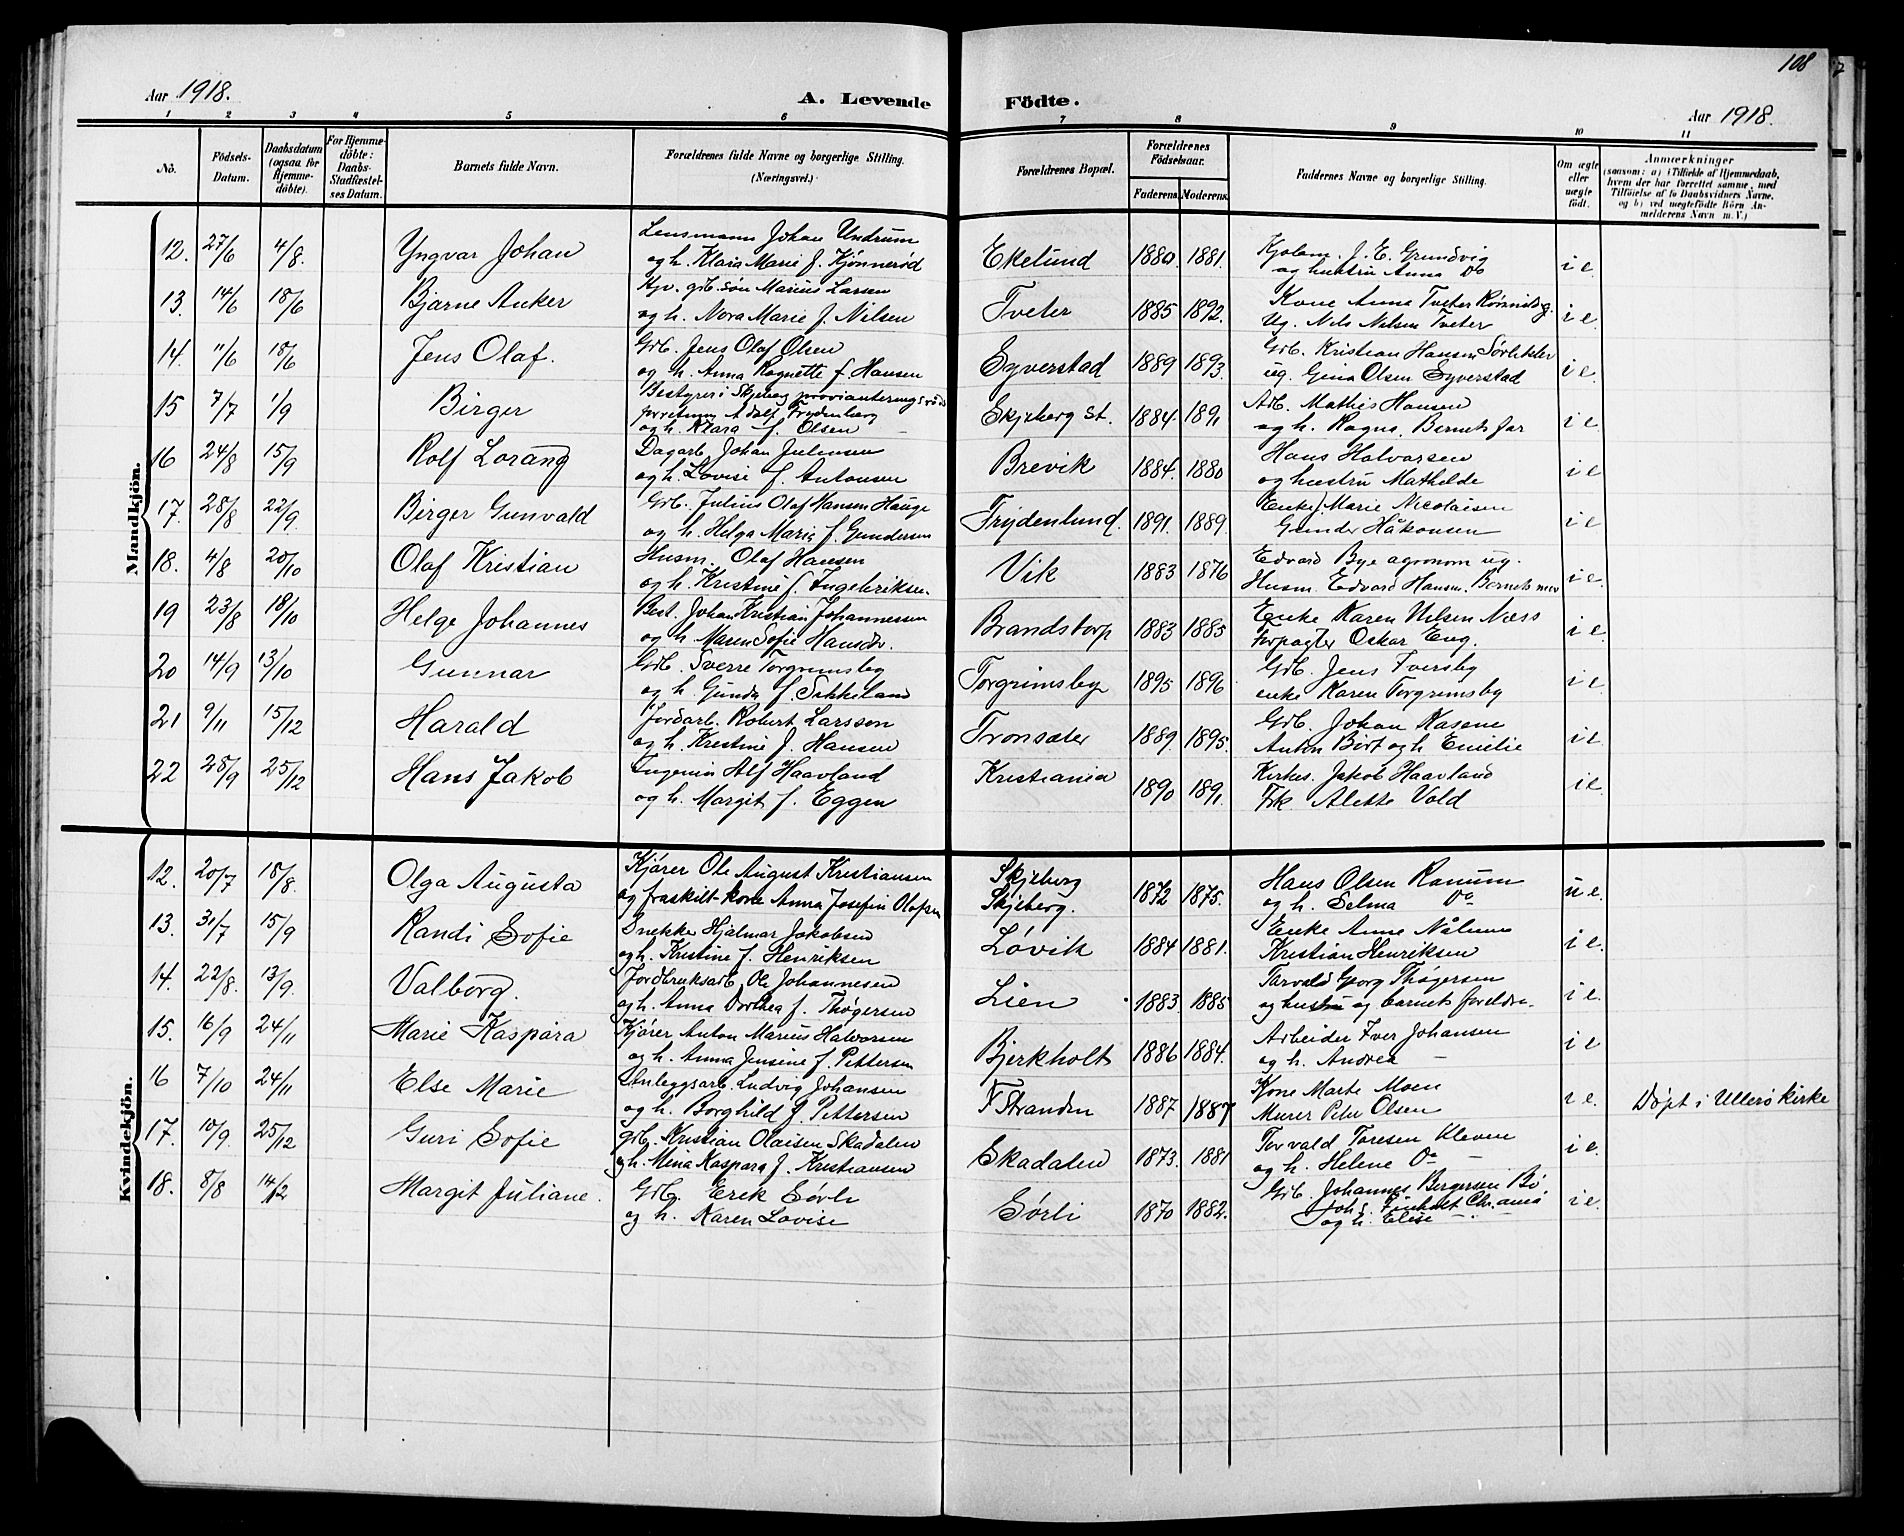 108
Aar 1918.
A. Levende Födte.
Aar 1918.
1 2 3 4 5 6 7 8 9 10 11
No.
Födsels-Datum.
Daabsdatum (ogsaa for Hjemme-döbte).
For Hjemme-döbte: Daabs-Stadfæstel-ses Datum.
Barnets fulde Navn.
Forældrenes fulde Navne og borgerlige Stilling. (Næringsvei.)
Forældrenes Bopæl.
Forældrenes Födselsaar.
Faderens. Moderens.
Faddernes Navne og borgerlige Stilling.
Om ægte eller uægte födt.
Anmærkninger
(saasom: a) i Tilfælde af Hjemmedaab,
hvem der har forrettet samme, med
Tilföielse af to Daabsvidners Navne,
og b) ved uægtefödte Börn An-
melderens Navn m. V.)
Mandkjön.
12. 27/6 4/8. Yngvar Johan Lensmann Johan Undrum Ekelund 1880. 1881. J. E. Grundvig i e.
og h. Klara Marie f. Kjønnerød og hustru Anna Do
13. 14/6 18/6 Bjarne Anker Gjv. grb. søn Marius Larsen Tveter 1885 1892. Kone Anna Tveter i e.
og h. Nora Marie f. Nilsen Ug. Nils Nilsen Tveter
14. 11/6 18/6 Jens Olaf. Grb. Jens Olaf Olsen Eyverstad 1889 1893. Grb. Kristian Hansen i e.
og h. Anna Ragnette f. Hansen ug. Gina Olsen Eyverstad
15 7/7 1/9 Birger Bestyrer i Skjeberg provianteringsråds Skjeberg St. 1884. 1891 Arb. Mathis Hansen i e.
forretning Adolf Frydenberg og h. Ragna. Barnets far
og h. Klara f. Olsen
16 24/8 15/9 Rolf Lorang Dagarb. Johan Julensen Brevik 1884. 1880 Hans Halvorsen i e
og h. Lovise f. Antonsen og hustru Mathilde
17. 28/8 22/9. Birger Gunvald Grb. Julius Olaf Hansen Hauge Frydenlund. 1891. 1889. (Enke) Marie Nicolaisen i e
og h. Helga Marie f. Gundersen Gunder Håkonsen
18. 4/8 20/10 Olaf Kristian Husm. Olaf Hansen Vik 1883 1876 Edvard Bye agronom ug. i e.
og h. Kristine f. Ingebriktsen. Husm. Edvard Hansen. Barnets mor
19 23/8 18/10 Helge Johannes Best. Johan Kristian Johannessen Brandstorp 1883 1885 Enke Karen Nilsen Næss i e.
og h. Maren Sofie Hansdr. Forpagter Oskar Eng.
20 14/9 13/10 Gunnar Grb. Sverre Torgrimsby Torgrimsby 1895 1896 Grb. Jens Iversby i e
og h. Gunda f. Sikkeland enke Karen Torgrimsby
21 9/11 15/12 Harald Jordarb. Robert Larsson Tronsæter 1889 1895. Grb. Johan Kasene i e
og h. Kristine f. Hansen Anton Bört og h Emilie
22 28/9 25/12 Hans Jakob Ingeniør Alf Haavland Kristiania 1890 1891. Kirkes. Jakob Haavland i e.
og h. Margit f. Eggen Frk. Alette Vold
Kvindekjön.
12. 20/7 18/8. Olga Augusta Kjører Ole August Kristiansen Skjeberg 1872 1875. Hans Olsen Ranum u e.
og fraskilt-kone Anna Josefin Olafsen Skjeberg. og h. Selma Do
13. 31/7 15/9 Randi Sofie Snekker Hjalmar Jakobsen Løvik 1884 1881. Enke Anne i e.
og h. Kristine f. Henriksen Kristian Henriksen
14. 22/8. 13/9. Valborg. Jordbruksarb. Ole Johannesen Lien 1883. 1885 Torvald Georg Thøgersen i e.
og h. Anna Dorthea f. Thøgersen og hustru og barnets foreldre.
15. 16/9 24/11 Marie Kaspara Kjører Anton Marius Halvorsen Bjerkholt 1886 1884. Arbeider Iver Johansen i e
og h. Anna Jensine f. Pettersen og h. Andrea —
16 7/10 24/11 Else Marie Anleggsarb. Ludvig Johansen Stranden 1887 1887 Kone Marte Moen i e. Døpt i Ullerø kirke
og h. Borghild f. Pettersen Murer Peter Olsen
17. 10/9. 25/12 Guri Sofie grb. Kristian Olaisen Skadalen Skadalen 1873. 1881 Torvald Toresen Kleven i e.
og h. Mina Kaspara f. Kristiansen og h. Helene Do —
18. 8/8 14/12 Margit Juliane. Grb. Erik Sørli Sørli 1870 1882. Grb. Johannes Bergersen Bø i e.
og h. Karen Lovise Johs. Finholt Chr.ania
og h. Elise —